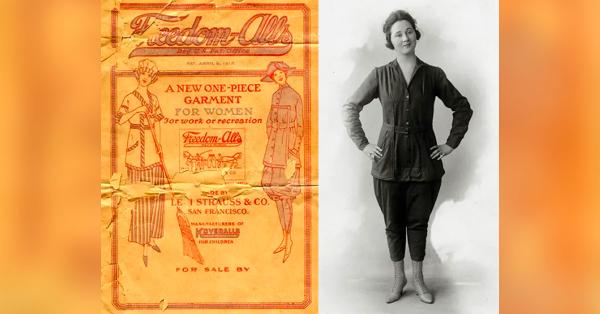 Freedom-Alls
Reg. U.S. Pat. Office
A NEW ONE-PIECE
GARMENT
FOR WOMEN
For work or recreation
Freedom-Alls
LE I STRAUSS & CO.
SAN FRANCISCO.
MANUFACTURERS OF
KOVERALLS
FOR CHILDREN
FOR SALE BY